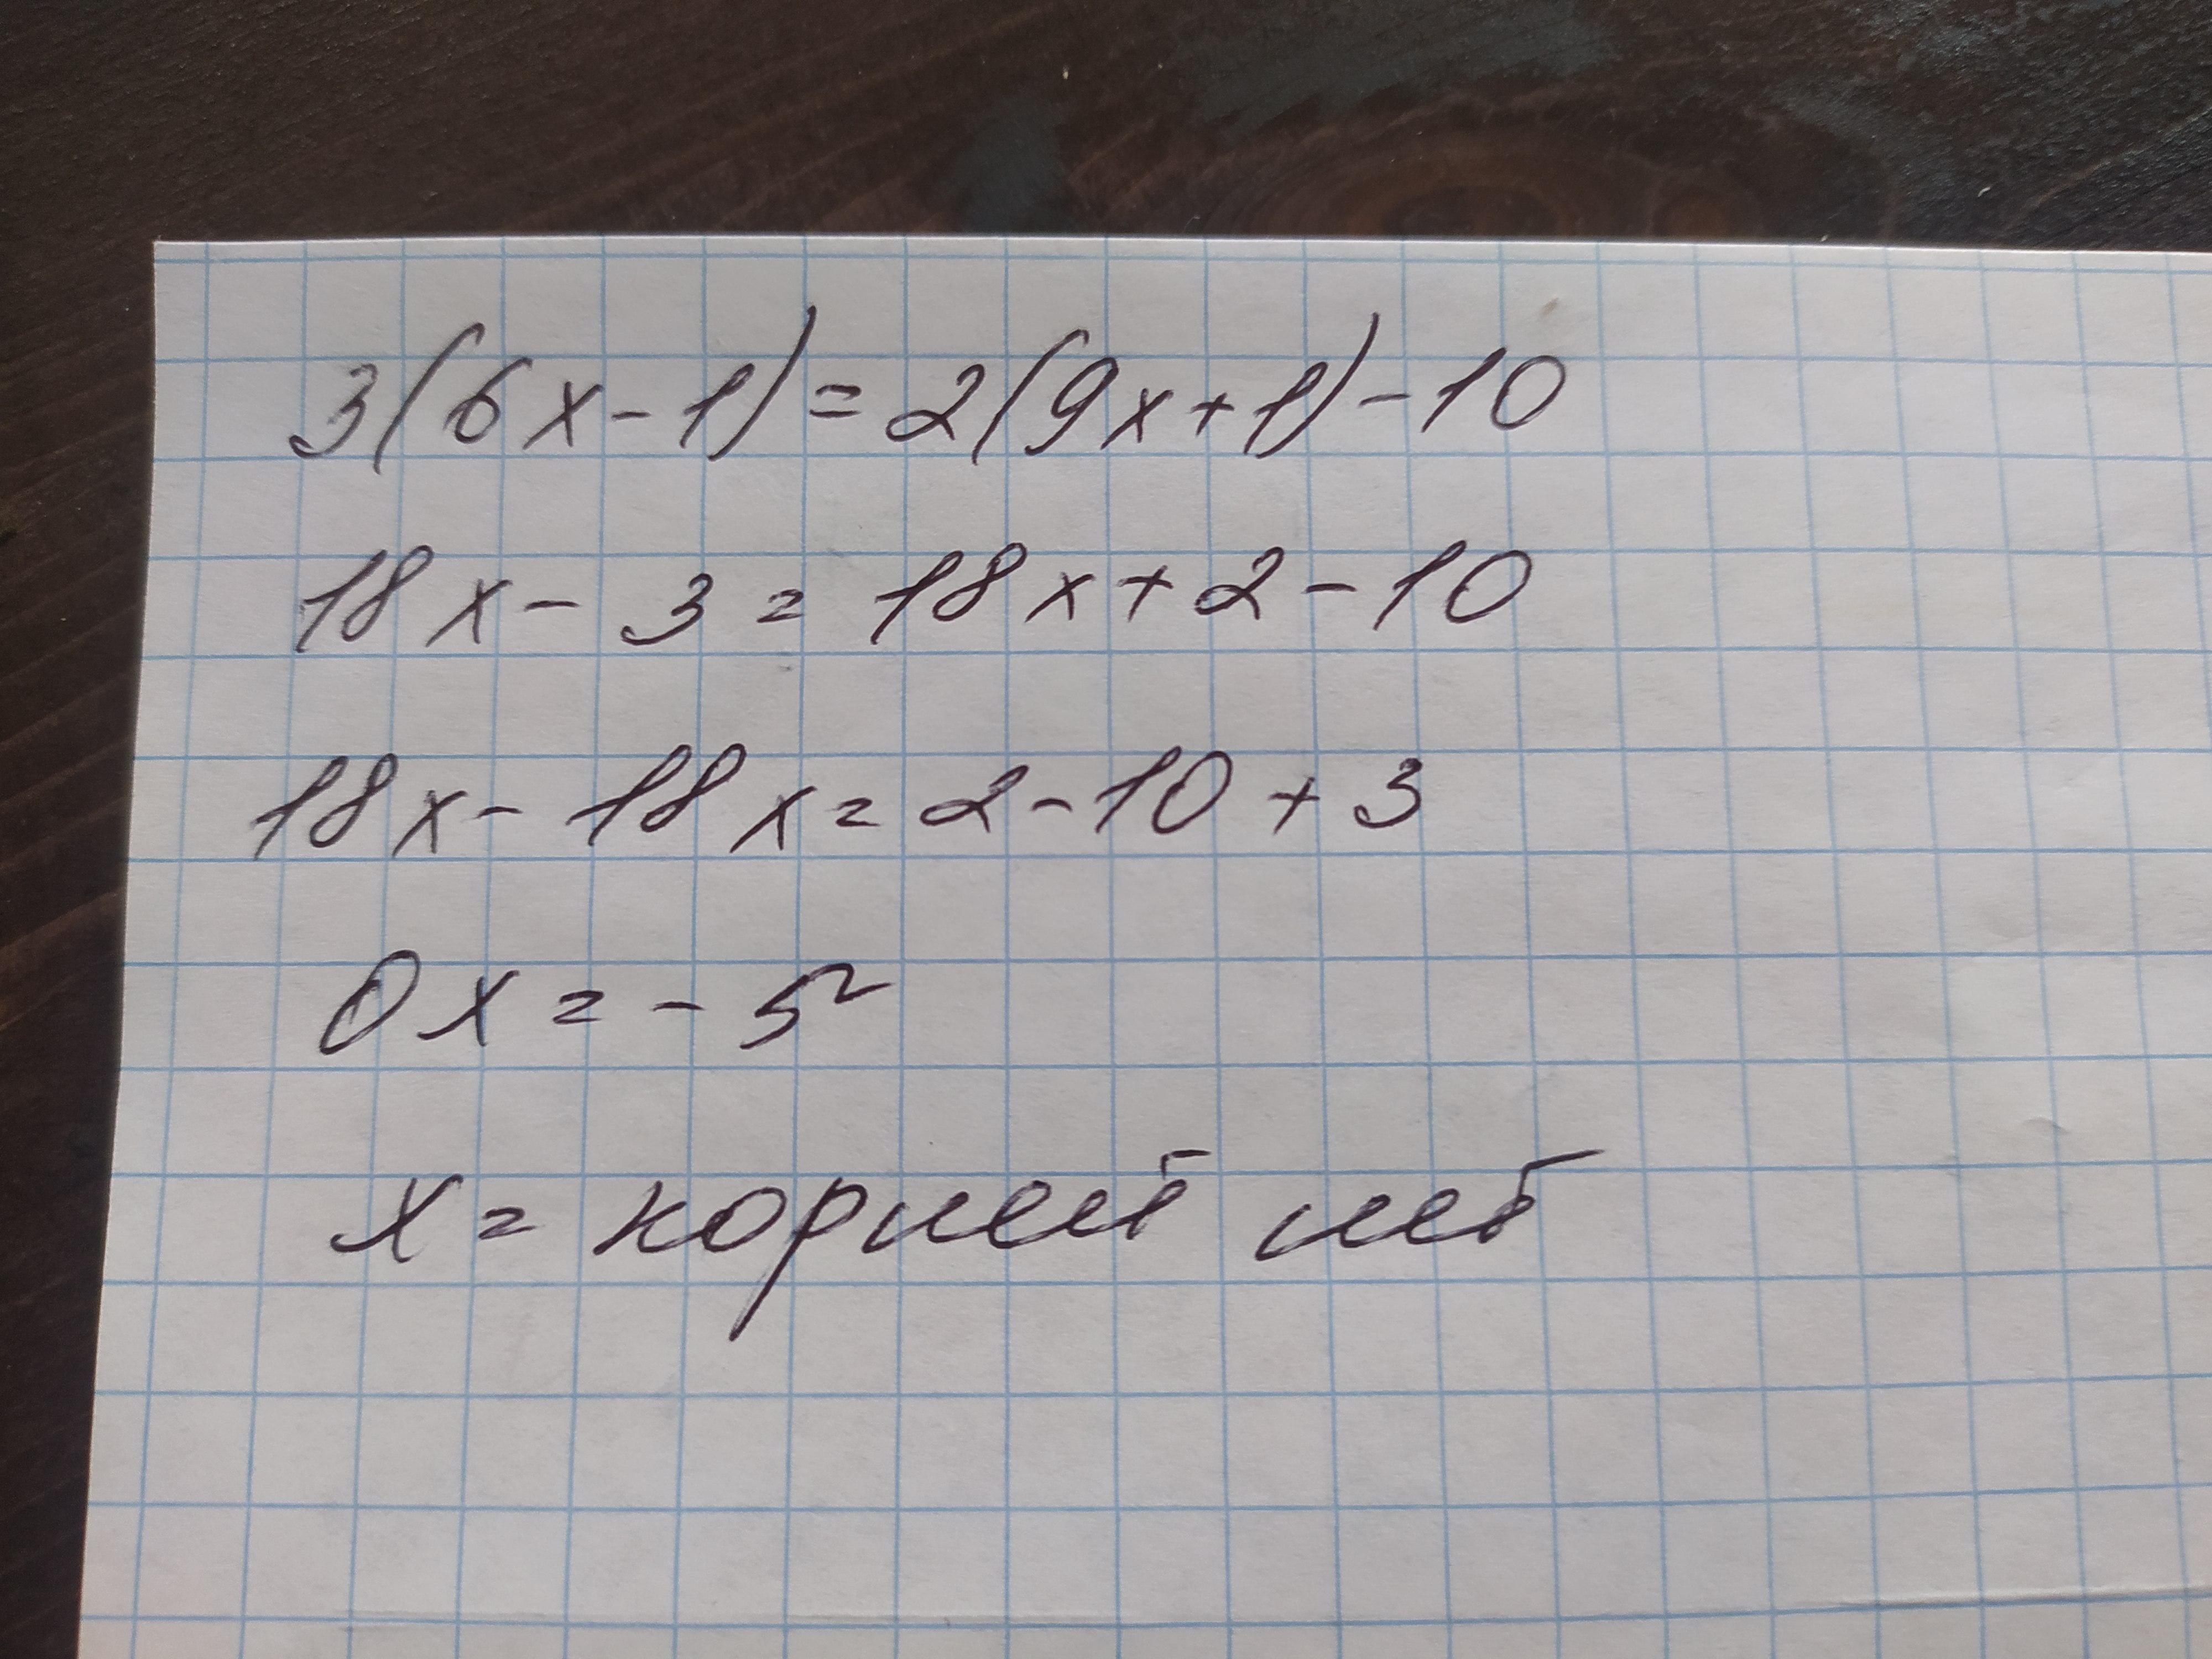 3(6x-1)=2(9x+1)-10
18x-3=18x+2-10
18x-18x=2-10+3
0x=-5
x= корней нет